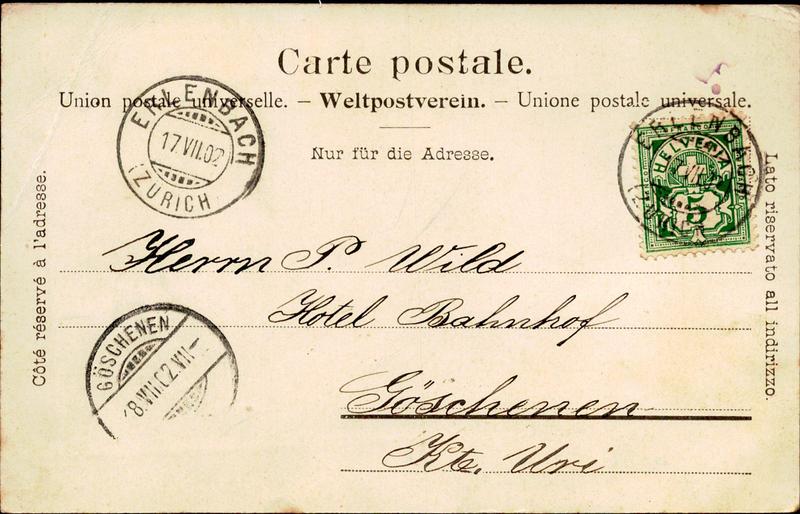 Carte postale.
Union postale universelle. – Weltpostverein. – Unione postale universale.
Nur für die Adresse.
Côté réservé à l'adresse.
Lato riservato all indirizzo.
ERLENBACH
17.VII.02
(ZÜRICH)
HELVETIA
5
Herrn P. Wild
Hotel Bahnhof
Göschenen
Kte. Uri
GÖSCHENEN
18.VII.02.XII–